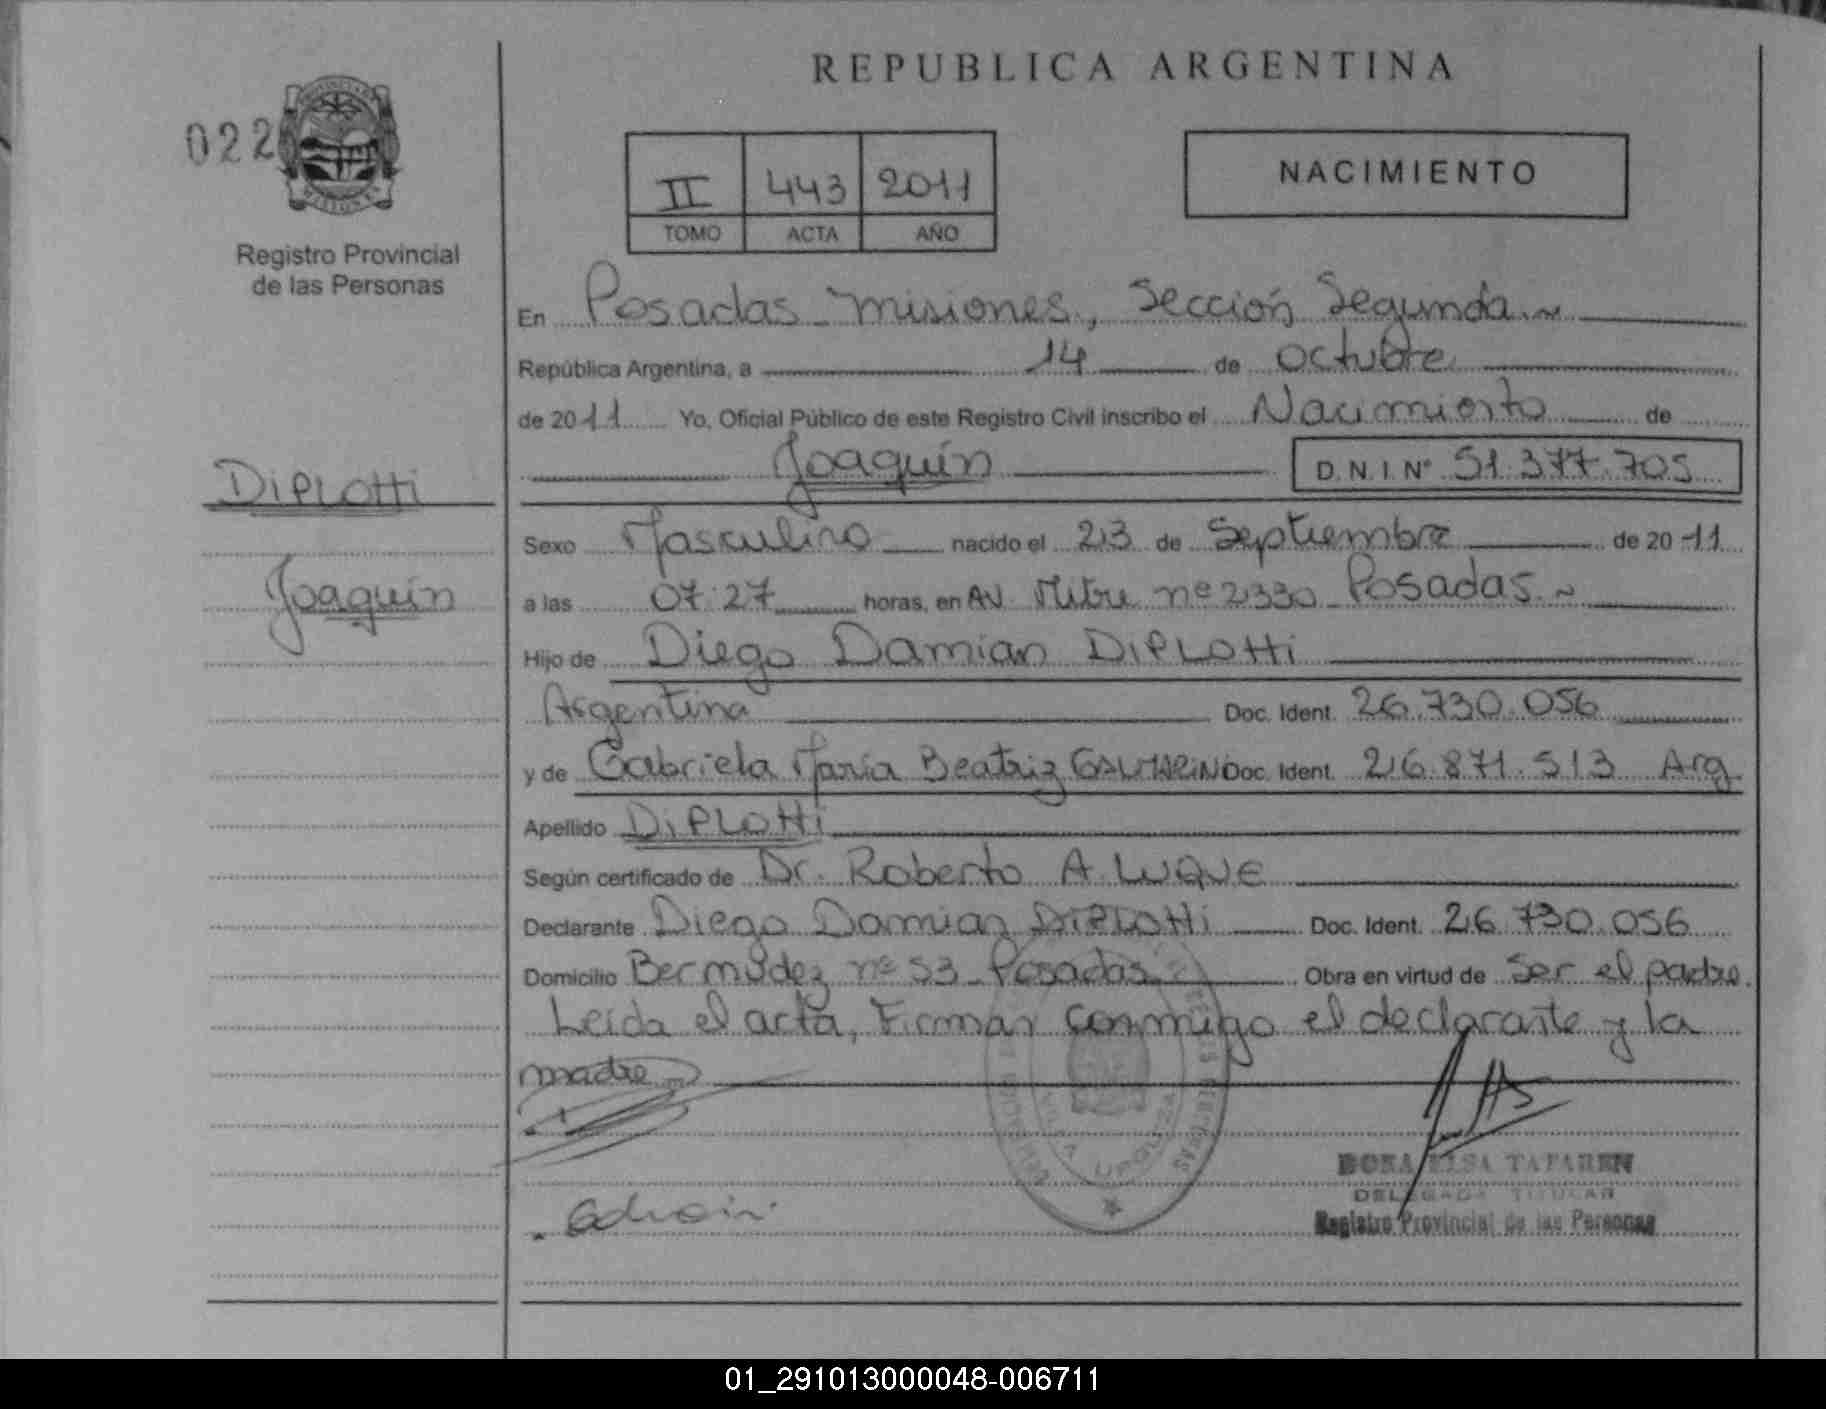 REPUBLICA ARGENTINA
022
II 443 2011
TOMO ACTA AÑO
NACIMIENTO
Registro Provincial
de las Personas
En Posadas - Misiones, Sección Segunda
República Argentina, a 14 de octubre
de 2011 Yo, Oficial Público de este Registro Civil inscribo el Nacimiento de
Joaquín D.N.I. Nº 51.377.705
DiPLOtti
Joaquín
Sexo Masculino nacido el 23 de Septiembre de 2011
a las 07:27 horas, en AV. Mitre nº 2330 - Posadas
Hijo de Diego Damian DiPLOtti
Argentina Doc. Ident. 26.730.056
y de Gabriela María Beatriz Doc. Ident. 26.871.513 Arg
Apellido DiPLOtti
Según certificado de Dr. Roberto A. LUQUE
Declarante Diego Damian DiPLOtti Doc. Ident. 26.730.056
Domicilio Bermúdez nº 53 - Posadas Obra en virtud de Ser el padre.
Leída el acta, Firman conmigo el declarante y la
madre
VILLA URQUIZA
ELSA TAFAREN
DELEGADA TITULAR
Registro Provincial de las Personas
01_291013000048-006711